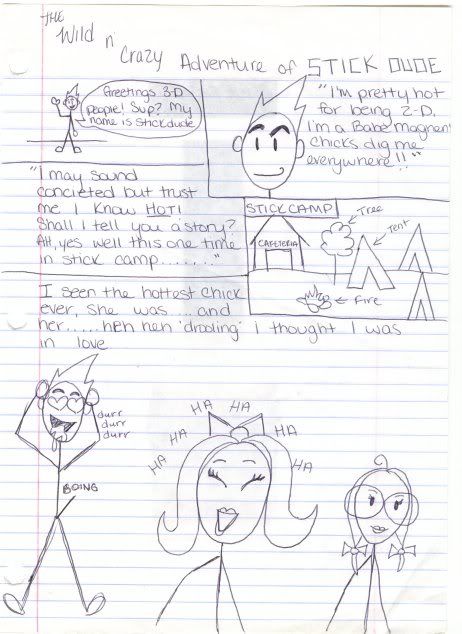 THE
Wild n'
Crazy Adventure of STICK DUDE
Greetings 3-D
People! Sup? My
name is Stickdude
"I'm pretty hot
for being 2-D.
I'm a Babe Magnent
Chicks dig me
everywhere!!"
"I may sound
concieted but trust
me I know HOT!
Shall I tell you a story?
Ah, yes well this one time
in stick camp......."
STICK CAMP
CAFETERIA
Tree
Tent
Fire
I seen the hottest chick
ever, she was....and
her.....heh heh 'drooling' I thought I was
in love
durr
durr
durr
BOING
HA
HA
HA
HA
HA
HA